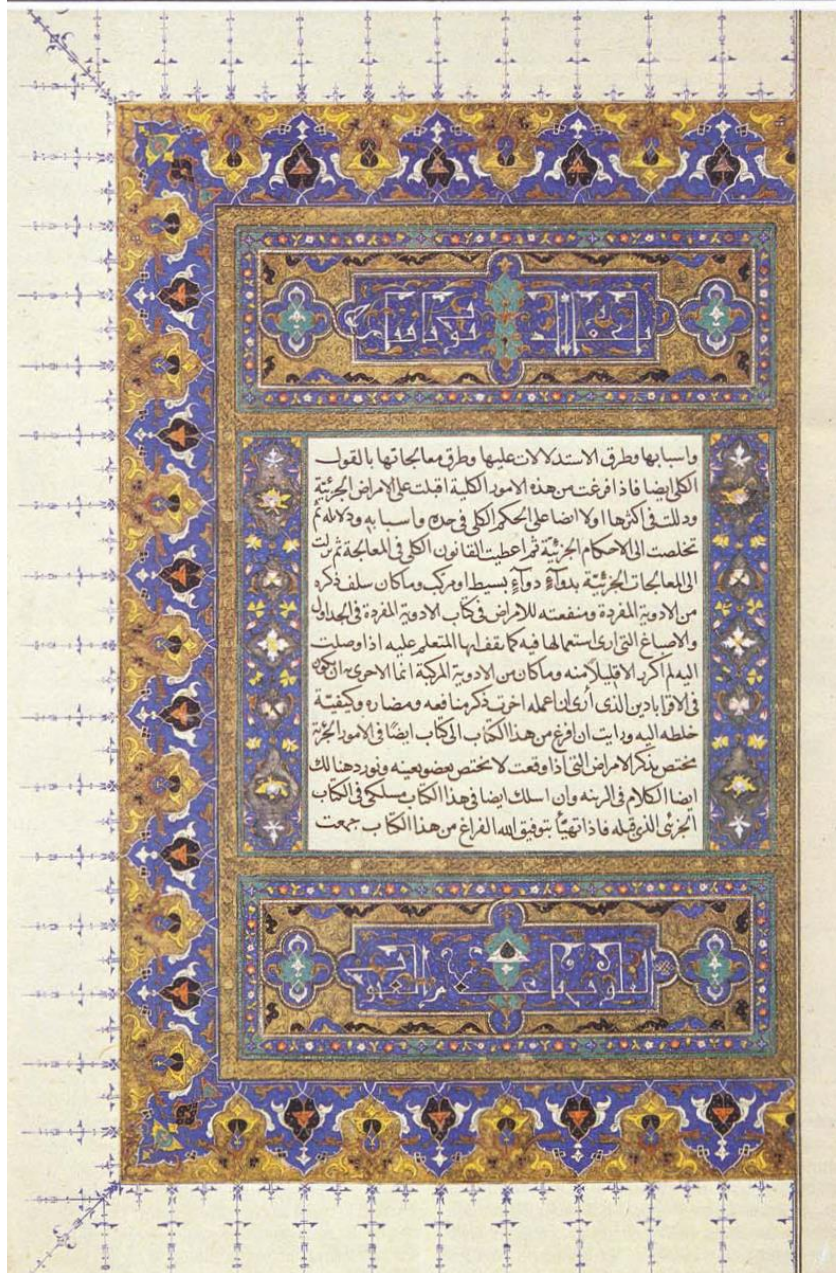 واسبابها وطرق الاستدلالات عليها وطرق معالجاتها بالقول
الكلى ايضا فاذا فرغت من هذه الامور الكلية اقبلت على الامراض الجزئية
ودللت فى اكثرها اولا ايضا على الحكم الكلى فى حده واسبابه ودلائله ثم
تخلصت الى الاحكام الجزئية ثم اعطيت القانون الكلى فى المعالجة ثم نزلت
الى المعالجات الجزئية بدوآءٍ دوآءٍ بسيط او مركب وما كان سلف ذكره
من الادوية المفردة ومنفعته للامراض فى كتاب الادوية المفردة فى الجداول
والاصباغ التى ارى استعمالها فيه كما تقف ايها المتعلم عليه اذا وصلت
اليه لم اكرر الا قليلاً منه وما كان من الادوية المركبة انما الاحرى به ان يكون
فى الاقرابادين الذى أرى ان اعمله اخرت ذكر منافعه ومضاره وكيفيّة
خلطه اليه ورايت ان افرغ من هذا الكتاب الى كتاب ايضًا فى الامور الجزئية
مختص بذكر الامراض التى اذا وقعت لا تختص بعضو بعينه ونورد هنالك
ايضا الكلام فى الزينه وان اسلك ايضا فى هذا الكتاب مسلكى فى الكتاب
الجزئى الذى قبله فاذا تهيّأ بتوفيق الله الفراغ من هذا الكتاب جمعت